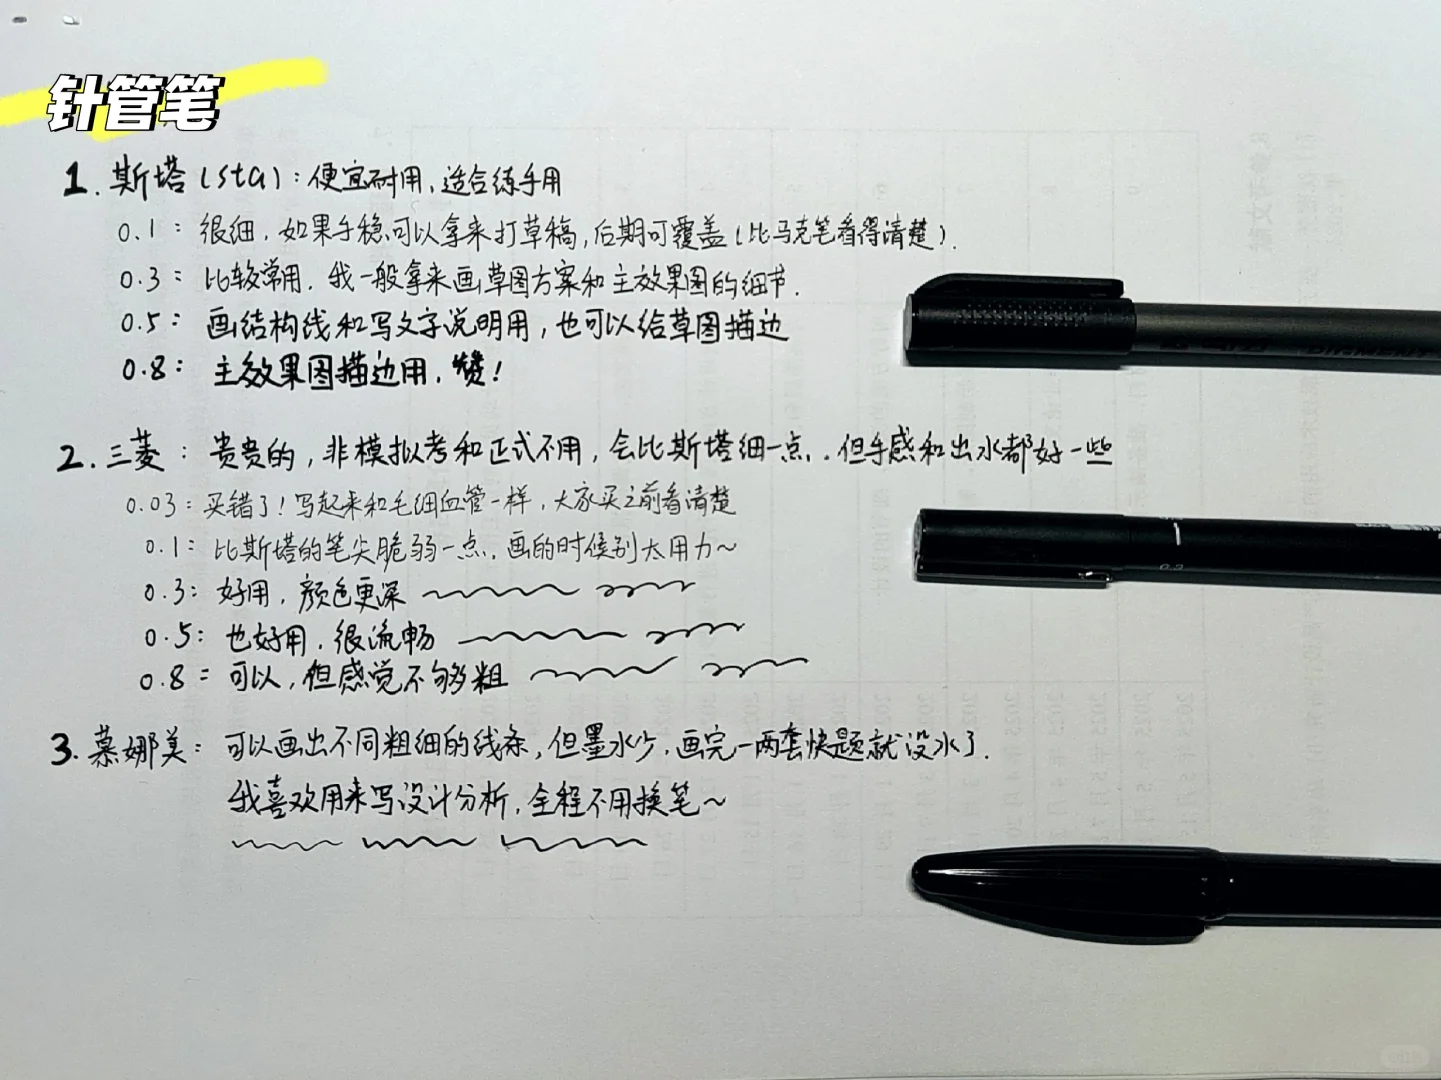 针管笔
1. 斯塔(sta):便宜耐用,适合练手用
0.1:很细,如果手稳可以拿来打草稿,后期可覆盖(比马克笔看得清楚).
0.3:比较常用.我一般拿来画草图方案和主效果图的细节.
0.5:画结构线和写文字说明用,也可以给草图描边
0.8:主效果图描边用,赞!
2. 三菱:贵贵的,非模拟考和正式不用,会比斯塔细一点.但手感和出水都好一些
0.03:买错了!写起来和毛细血管一样,大家买之前看清楚
0.1:比斯塔的笔尖脆弱一点.画的时候别太用力~
0.3:好用,颜色更深
0.5:也好用,很流畅
0.8:可以,但感觉不够粗
3. 慕娜美:可以画出不同粗细的线条,但墨水少,画完一两套快题就没水了.
我喜欢用来写设计分析,全程不用换笔~